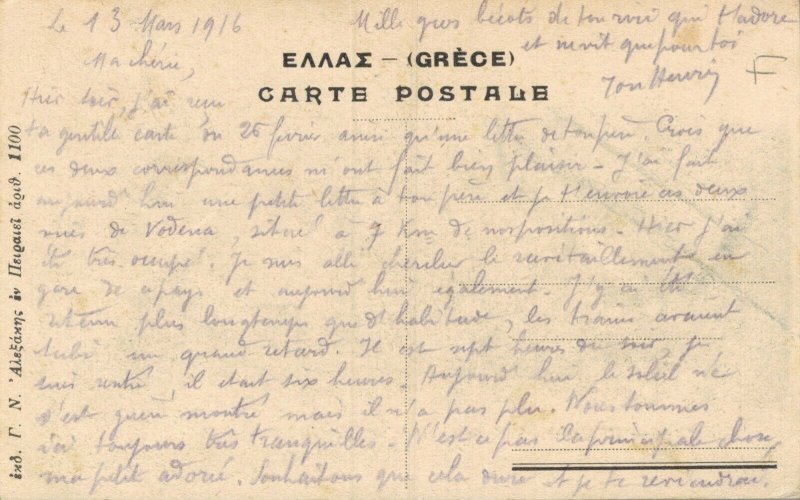 Le 13 Mars 1916
Mille gros bécots de ton rviri qui t'adore
et ne vit que pour toi
Ton Henri
F
Ma chérie,
ΕΛΛΑΣ – (GRÈCE)
CARTE POSTALE
Hier soir, j'ai reçu
ta gentille carte du 26 février ainsi qu'une lettre de ton père. Crois que
ces deux correspondances m'ont fait bien plaisir - J'ai fait
aujourd'hui une petite lettre à ton père et je t'envoie ces deux
vues de Vodena, situé à 7 Km de nos positions - Hier j'ai
été très occupé. Je suis allé chercher le ravitaillement en
gare de pays et aujourd'hui également. J'y ai été
retenu plus longtemps que d'habitude, les trains avaient
subi un grand retard. Il est sept heures du soir, je
suis rentré, il était six heures. Aujourd'hui le soleil ne
s'est guère montré mais il n'a pas plu. Nous sommes
ici toujours très tranquilles. N'est ce pas la principale chose,
ma petite adorée. Souhaitons que cela dure et je te reviendrai.
ἐκδ. Γ. Ν. Ἀλεξάκης ἐν Πειραιεῖ ἀριθ. 1100